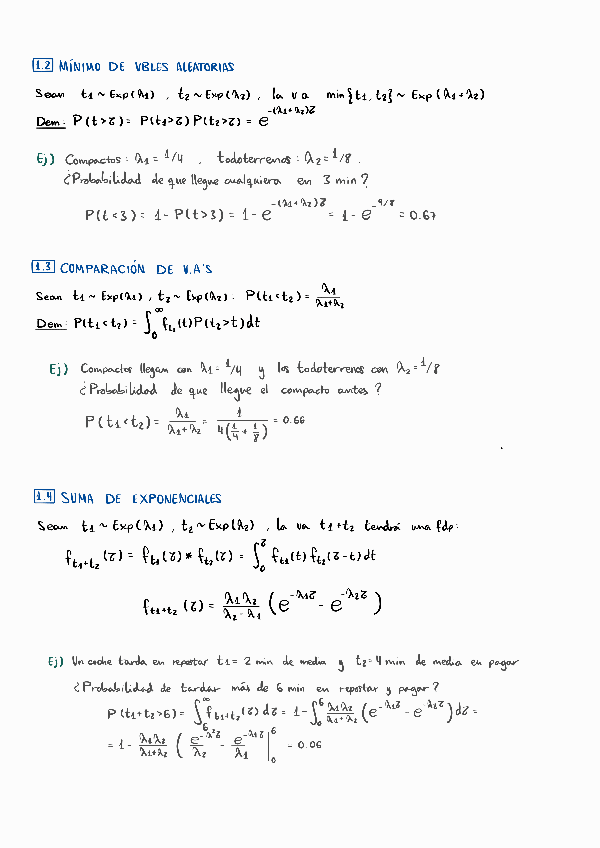 1.2 MÍNIMO DE VBLES ALEATORIAS
Sean t₁ ~ Exp(λ₁) , t₂ ~ Exp(λ₂) , la v a min{t₁, t₂} ~ Exp (λ₁+λ₂)
Dem: P(t>τ) = P(t₁>τ) P(t₂>τ) = e^-(λ₁+λ₂)τ
Ej) Compactos: λ₁ = 1/4 , todoterrenos: λ₂ = 1/8 .
¿Probabilidad de que llegue cualquiera en 3 min?
P(t<3) = 1 - P(t>3) = 1 - e^-(λ₁+λ₂)τ = 1 - e^-9/8 = 0.67
1.3 COMPARACIÓN DE V.A'S
Sean t₁ ~ Exp(λ₁) , t₂ ~ Exp(λ₂). P(t₁<t₂) = λ₁/(λ₁+λ₂)
Dem: P(t₁<t₂) = ∫₀^∞ f_t₁(t) P(t₂>t) dt
Ej) Compactos llegan con λ₁ = 1/4 y los todoterrenos con λ₂ = 1/8
¿Probabilidad de que llegue el compacto antes ?
P(t₁<t₂) = λ₁/(λ₁+λ₂) = 1/(4(1/4 + 1/8)) = 0.66
1.4 SUMA DE EXPONENCIALES
Sean t₁ ~ Exp(λ₁) , t₂ ~ Exp(λ₂) , la va t₁+t₂ tendrá una fdp:
f_t₁+t₂ (τ) = f_t₁(τ) * f_t₂(τ) = ∫₀^τ f_t₁(t) f_t₂(τ-t) dt
f_t₁+t₂ (τ) = λ₁λ₂/(λ₂-λ₁) (e^-λ₁τ - e^-λ₂τ)
Ej) Un coche tarda en repostar t₁ = 2 min de media y t₂ = 4 min de media en pagar
¿Probabilidad de tardar más de 6 min en repostar y pagar?
P(t₁+t₂>6) = ∫₆^∞ f_t₁+t₂(τ) dτ = 1 - ∫₀^6 λ₁λ₂/(λ₁+λ₂) (e^-λ₁τ - e^λ₂τ) dτ =
= 1 - λ₁λ₂/(λ₁+λ₂) (e^-λ²τ/λ₂ - e^-λ₁τ/λ₁ |₀^6 = 0.06